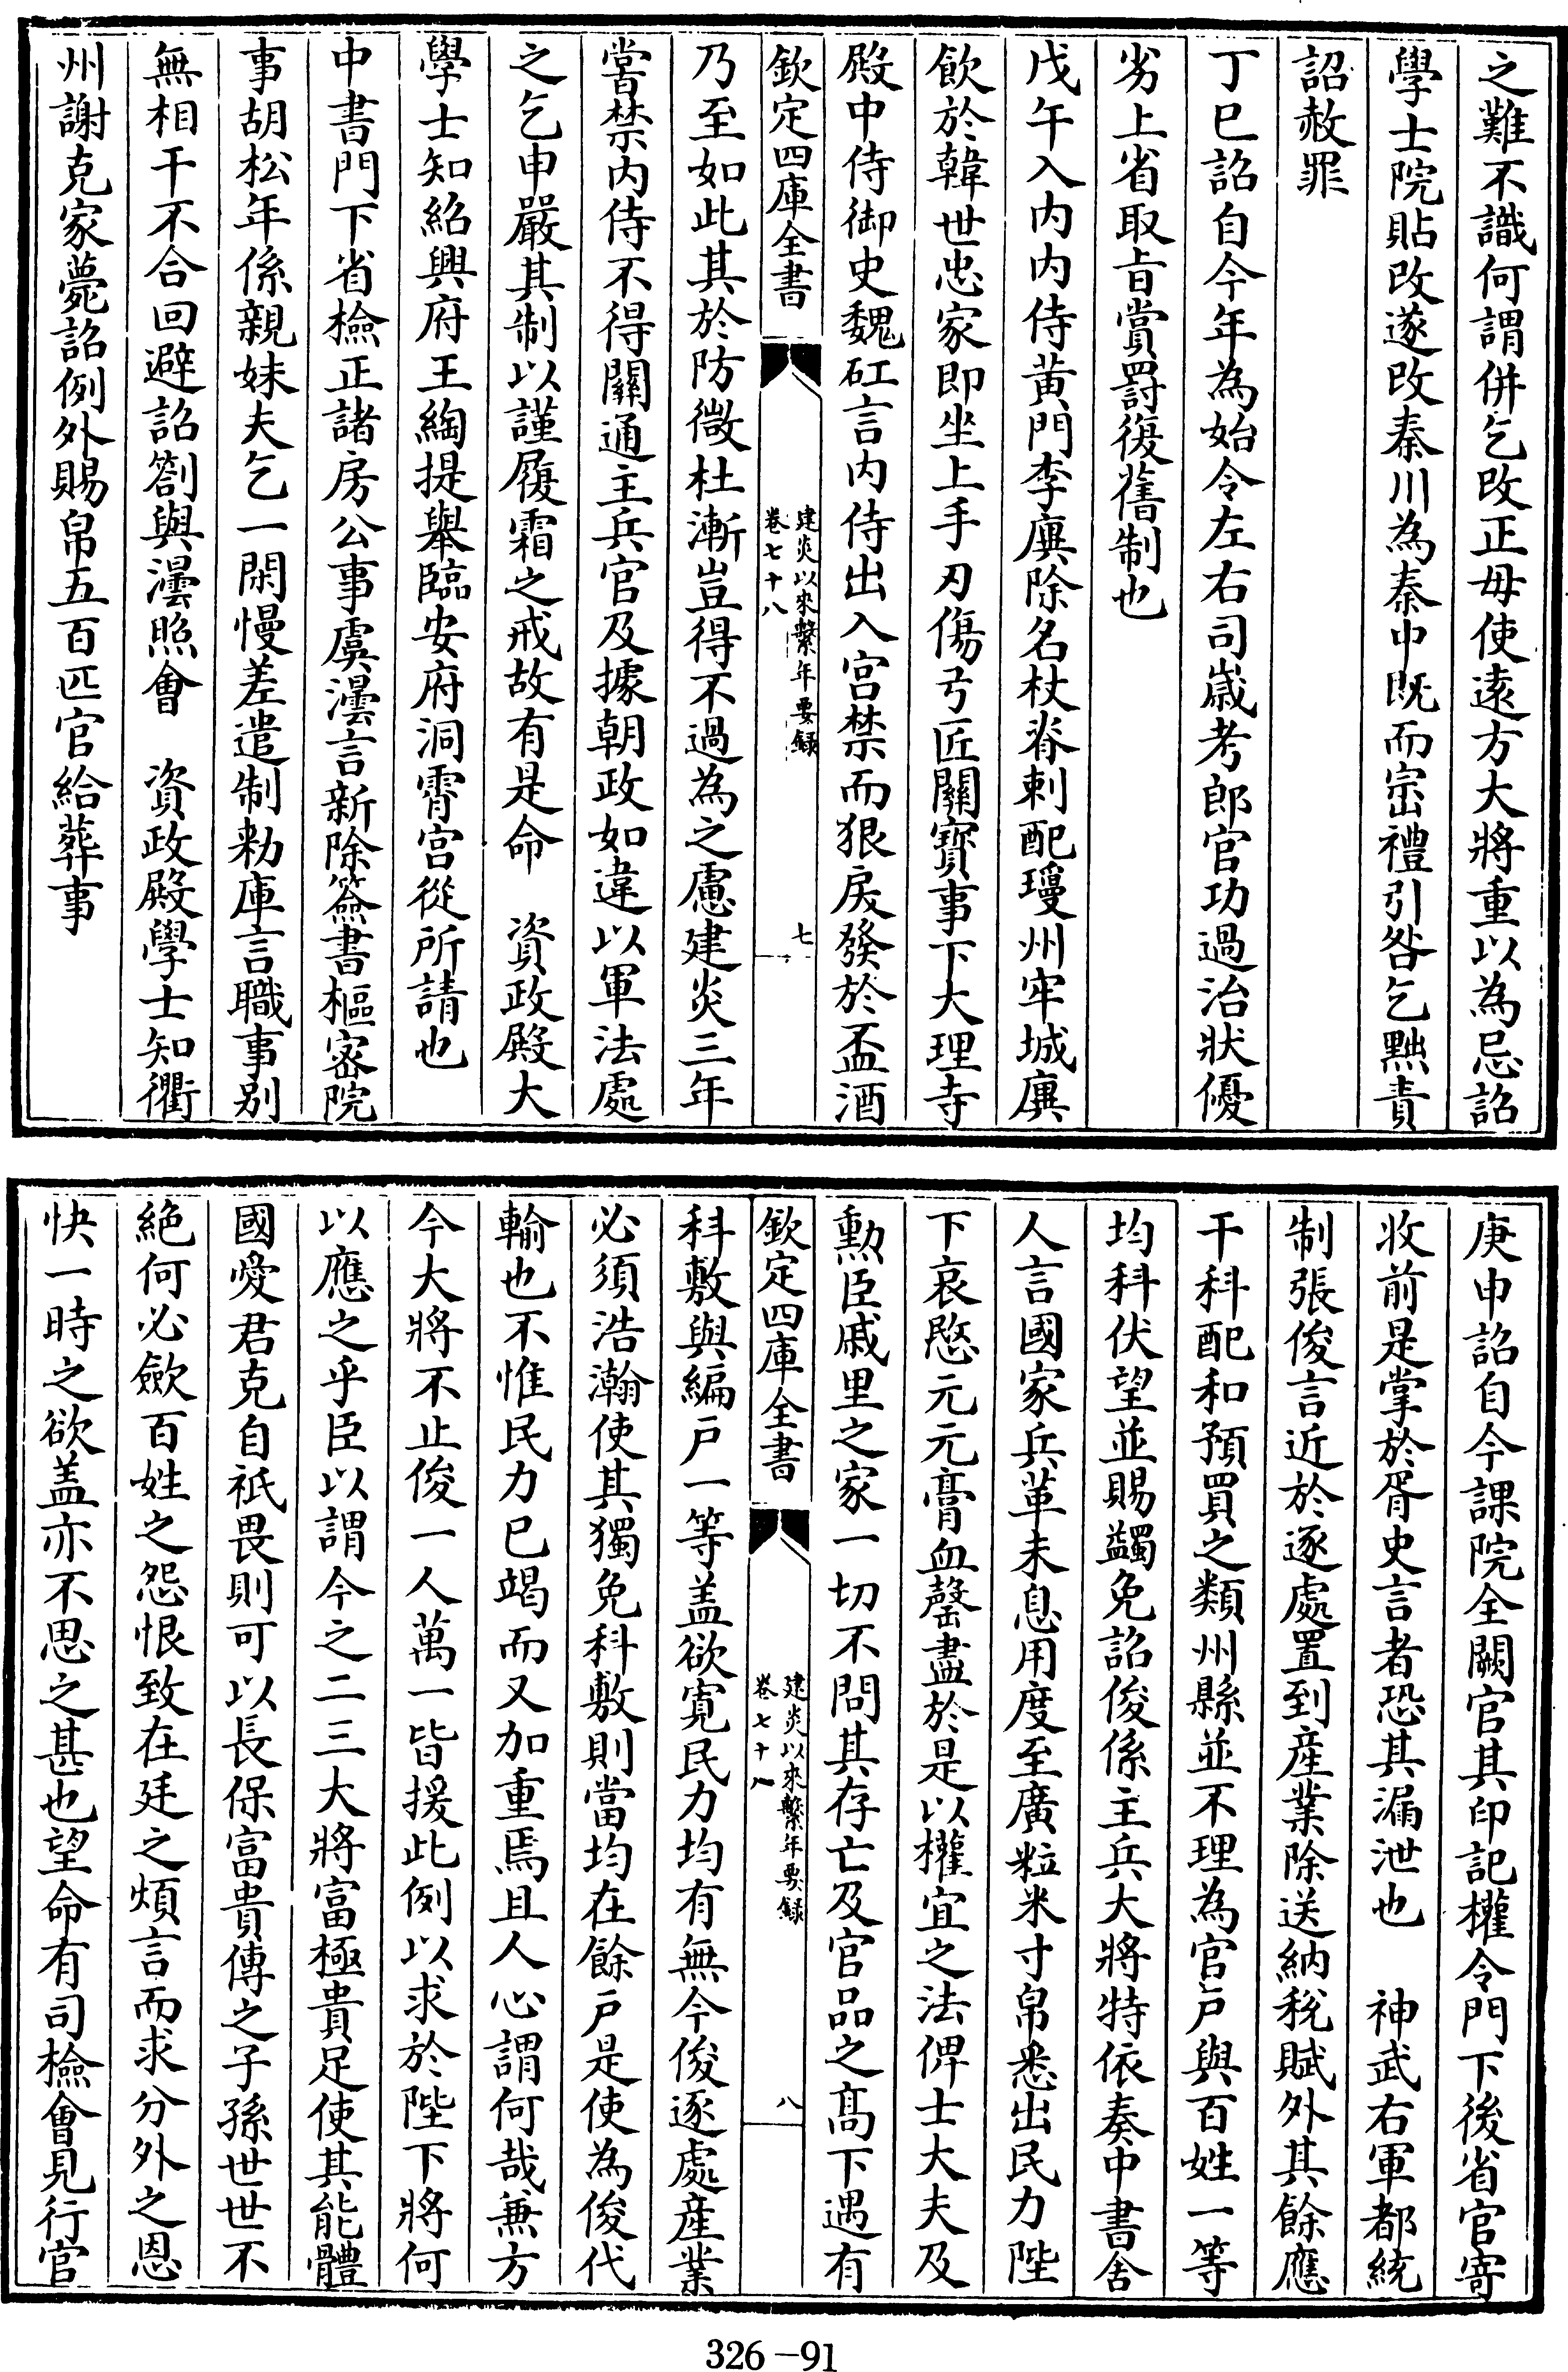 之難不識何謂併乞改正毋使逺方大將重以為忌詔
學士院貼改遂改秦川為秦中既而崇禮引咎乞黜責
詔赦罪
丁巳詔自今年為始令左右司嵗考郎官功過治狀優
劣上省取㫖賞罸復舊制也
戊午入内内侍黄門李廙除名杖脊刺配瓊州牢城廙
飲於韓世忠家即坐上手刃傷弓匠關寳事下大理寺
殿中侍御史魏矼言内侍出入宫禁而狠戾發於盃酒
欽定四庫全書
建炎以來繫年要録
卷七十八
七
乃至如此其於防微杜漸豈得不過為之慮建炎三年
嘗禁内侍不得關通主兵官及據朝政如違以軍法處
之乞申嚴其制以謹履霜之戒故有是命　資政殿大
學士知紹興府王綯提舉臨安府洞霄宫從所請也
中書門下省檢正諸房公事虞澐言新除簽書樞密院
事胡松年係親妹夫乞一閑慢差遣制敕庫言職事别
無相干不合回避詔劄與澐照會　資政殿學士知衢
州謝克家薨詔例外賜帛五百匹官給葬事
庚申詔自今課院全闕官其印記權令門下後省官寄
收前是掌於胥史言者恐其漏泄也　神武右軍都統
制張俊言近於逐處置到産業除送納稅賦外其餘應
干科配和預買之類州縣並不理為官戶與百姓一等
均科伏望並賜蠲免詔俊係主兵大將特依奏中書舍
人言國家兵革未息用度至廣粒米寸帛悉出民力陛
下哀愍元元膏血罄盡於是以權宜之法俾士大夫及
勲臣戚里之家一切不問其存亡及官品之髙下遇有
欽定四庫全書
建炎以來繫年要録
卷七十八
八
科敷與編戶一等盖欲寛民力均有無今俊逐處産業
必須浩瀚使其獨免科敷則當均在餘戶是使為俊代
輸也不惟民力已竭而又加重焉且人心謂何哉兼方
今大將不止俊一人萬一皆援此例以求於陛下將何
以應之乎臣以謂今之二三大將富極貴足使其能體
國愛君克自祇畏則可以長保富貴傳之子孫世世不
絶何必歛百姓之怨恨致在廷之煩言而求分外之恩
快一時之欲盖亦不思之甚也望命有司檢會見行官
326－91